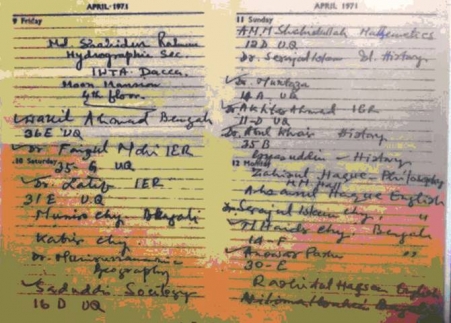 APRIL · 1971
9 Friday
Md. Shahidur Rahman
Hydrographic Sec.
IWTA. Dacca.
Moon Mansion
4th floor
Ahmad Bengali
36E UQ
Dr. Faizul Mohi IER
10 Saturday
35-G UQ
Dr. Latif IER
31E UQ
Munier Chy Bengali
Kabir Chy
Dr. Muniruzzaman
Geography
Saduddin Sociology
16 D UQ
APRIL 1971
11 Sunday
A.M.M Shahidullah Mathematics
12D UQ
Dr. Serajul Islam Isl. History
Dr. Murtaza
14 A. UQ
Dr. Akhter Ahmed IER
11-D UQ
Dr. Abul Khair History
35 B
Gyasuddin - History
12 Monday
Zahirul Haque - Philosophy
M.M. Hall
Ahsanul Haque English
Dr. Serajul Islam Chy "
M Haider Chy Bengali
14-F
Anowar Pasha "
30-E
Rashidul Hassan English